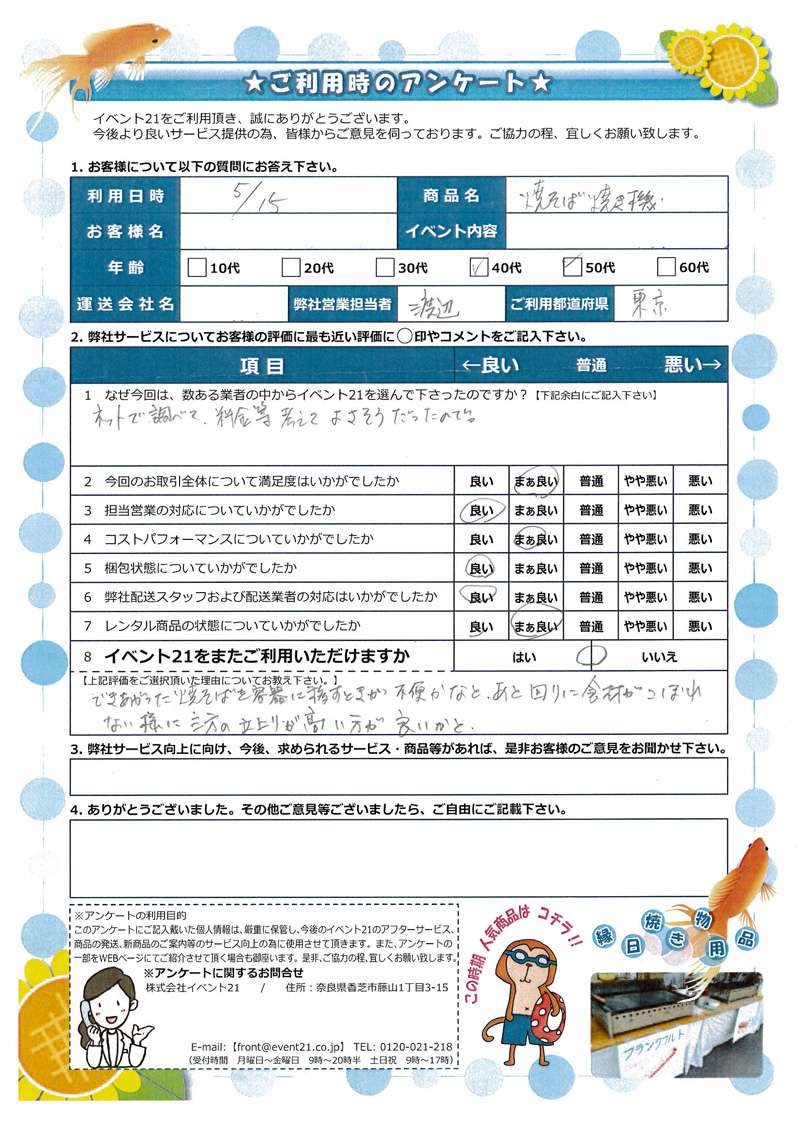 ★ご利用時のアンケート★
イベント21をご利用頂き、誠にありがとうございます。
今後より良いサービス提供の為、皆様からご意見を伺っております。ご協力の程、宜しくお願い致します。
1. お客様について以下の質問にお答え下さい。
利用日時 5/15 商品名 焼そば焼き機
お客様名 イベント内容
年齢 10代 20代 30代 40代 50代 60代
運送会社名 弊社営業担当者 渡辺 ご利用都道府県 東京
2. 弊社サービスについてお客様の評価に最も近い評価に○印やコメントをご記入下さい。
項目 ←良い 普通 悪い→
1 なぜ今回は、数ある業者の中からイベント21を選んで下さったのですか？【下記余白にご記入下さい】
ネットで調べて、料金等考えてよさそうだったので。
2 今回のお取引全体について満足度はいかがでしたか 良い まぁ良い 普通 やや悪い 悪い
3 担当営業の対応についていかがでしたか 良い まぁ良い 普通 やや悪い 悪い
4 コストパフォーマンスについていかがでしたか 良い まぁ良い 普通 やや悪い 悪い
5 梱包状態についていかがでしたか 良い まぁ良い 普通 やや悪い 悪い
6 弊社配送スタッフおよび配送業者の対応はいかがでしたか 良い まぁ良い 普通 やや悪い 悪い
7 レンタル商品の状態についていかがでしたか 良い まぁ良い 普通 やや悪い 悪い
8 イベント21をまたご利用いただけますか はい いいえ
【上記評価をご選択頂いた理由についてお教え下さい。】
できあがった焼そばを容器に移すときが不便かなと、あと回りに食材がこぼれ
ない様に三方の立上りが高い方が良いかと、
3. 弊社サービス向上に向け、今後、求められるサービス・商品等があれば、是非お客様のご意見をお聞かせ下さい。
4. ありがとうございました。その他ご意見等ございましたら、ご自由にご記載下さい。
※アンケートの利用目的
このアンケートにご記入戴いた個人情報は、厳重に保管し、今後のイベント21のアフターサービス、
商品の発送、新商品のご案内等のサービス向上の為に使用させて頂きます。また、アンケートの
一部をWEBページにてご紹介させて頂く場合も御座います。是非、ご協力の程、宜しくお願い致します。
※アンケートに関するお問合せ
株式会社イベント21 / 住所：奈良県香芝市藤山1丁目3-15
E-mail:【front@event21.co.jp】 TEL: 0120-021-218
（受付時間 月曜日～金曜日 9時～20時半 土日祝 9時～17時）
この時期 人気商品は コチラ!!
縁日焼き物用品
フランクフルト